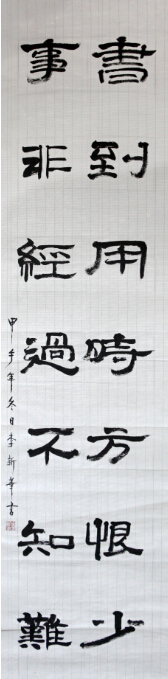 書到用時方恨少
事非經過不知難
甲午年冬日李新華書